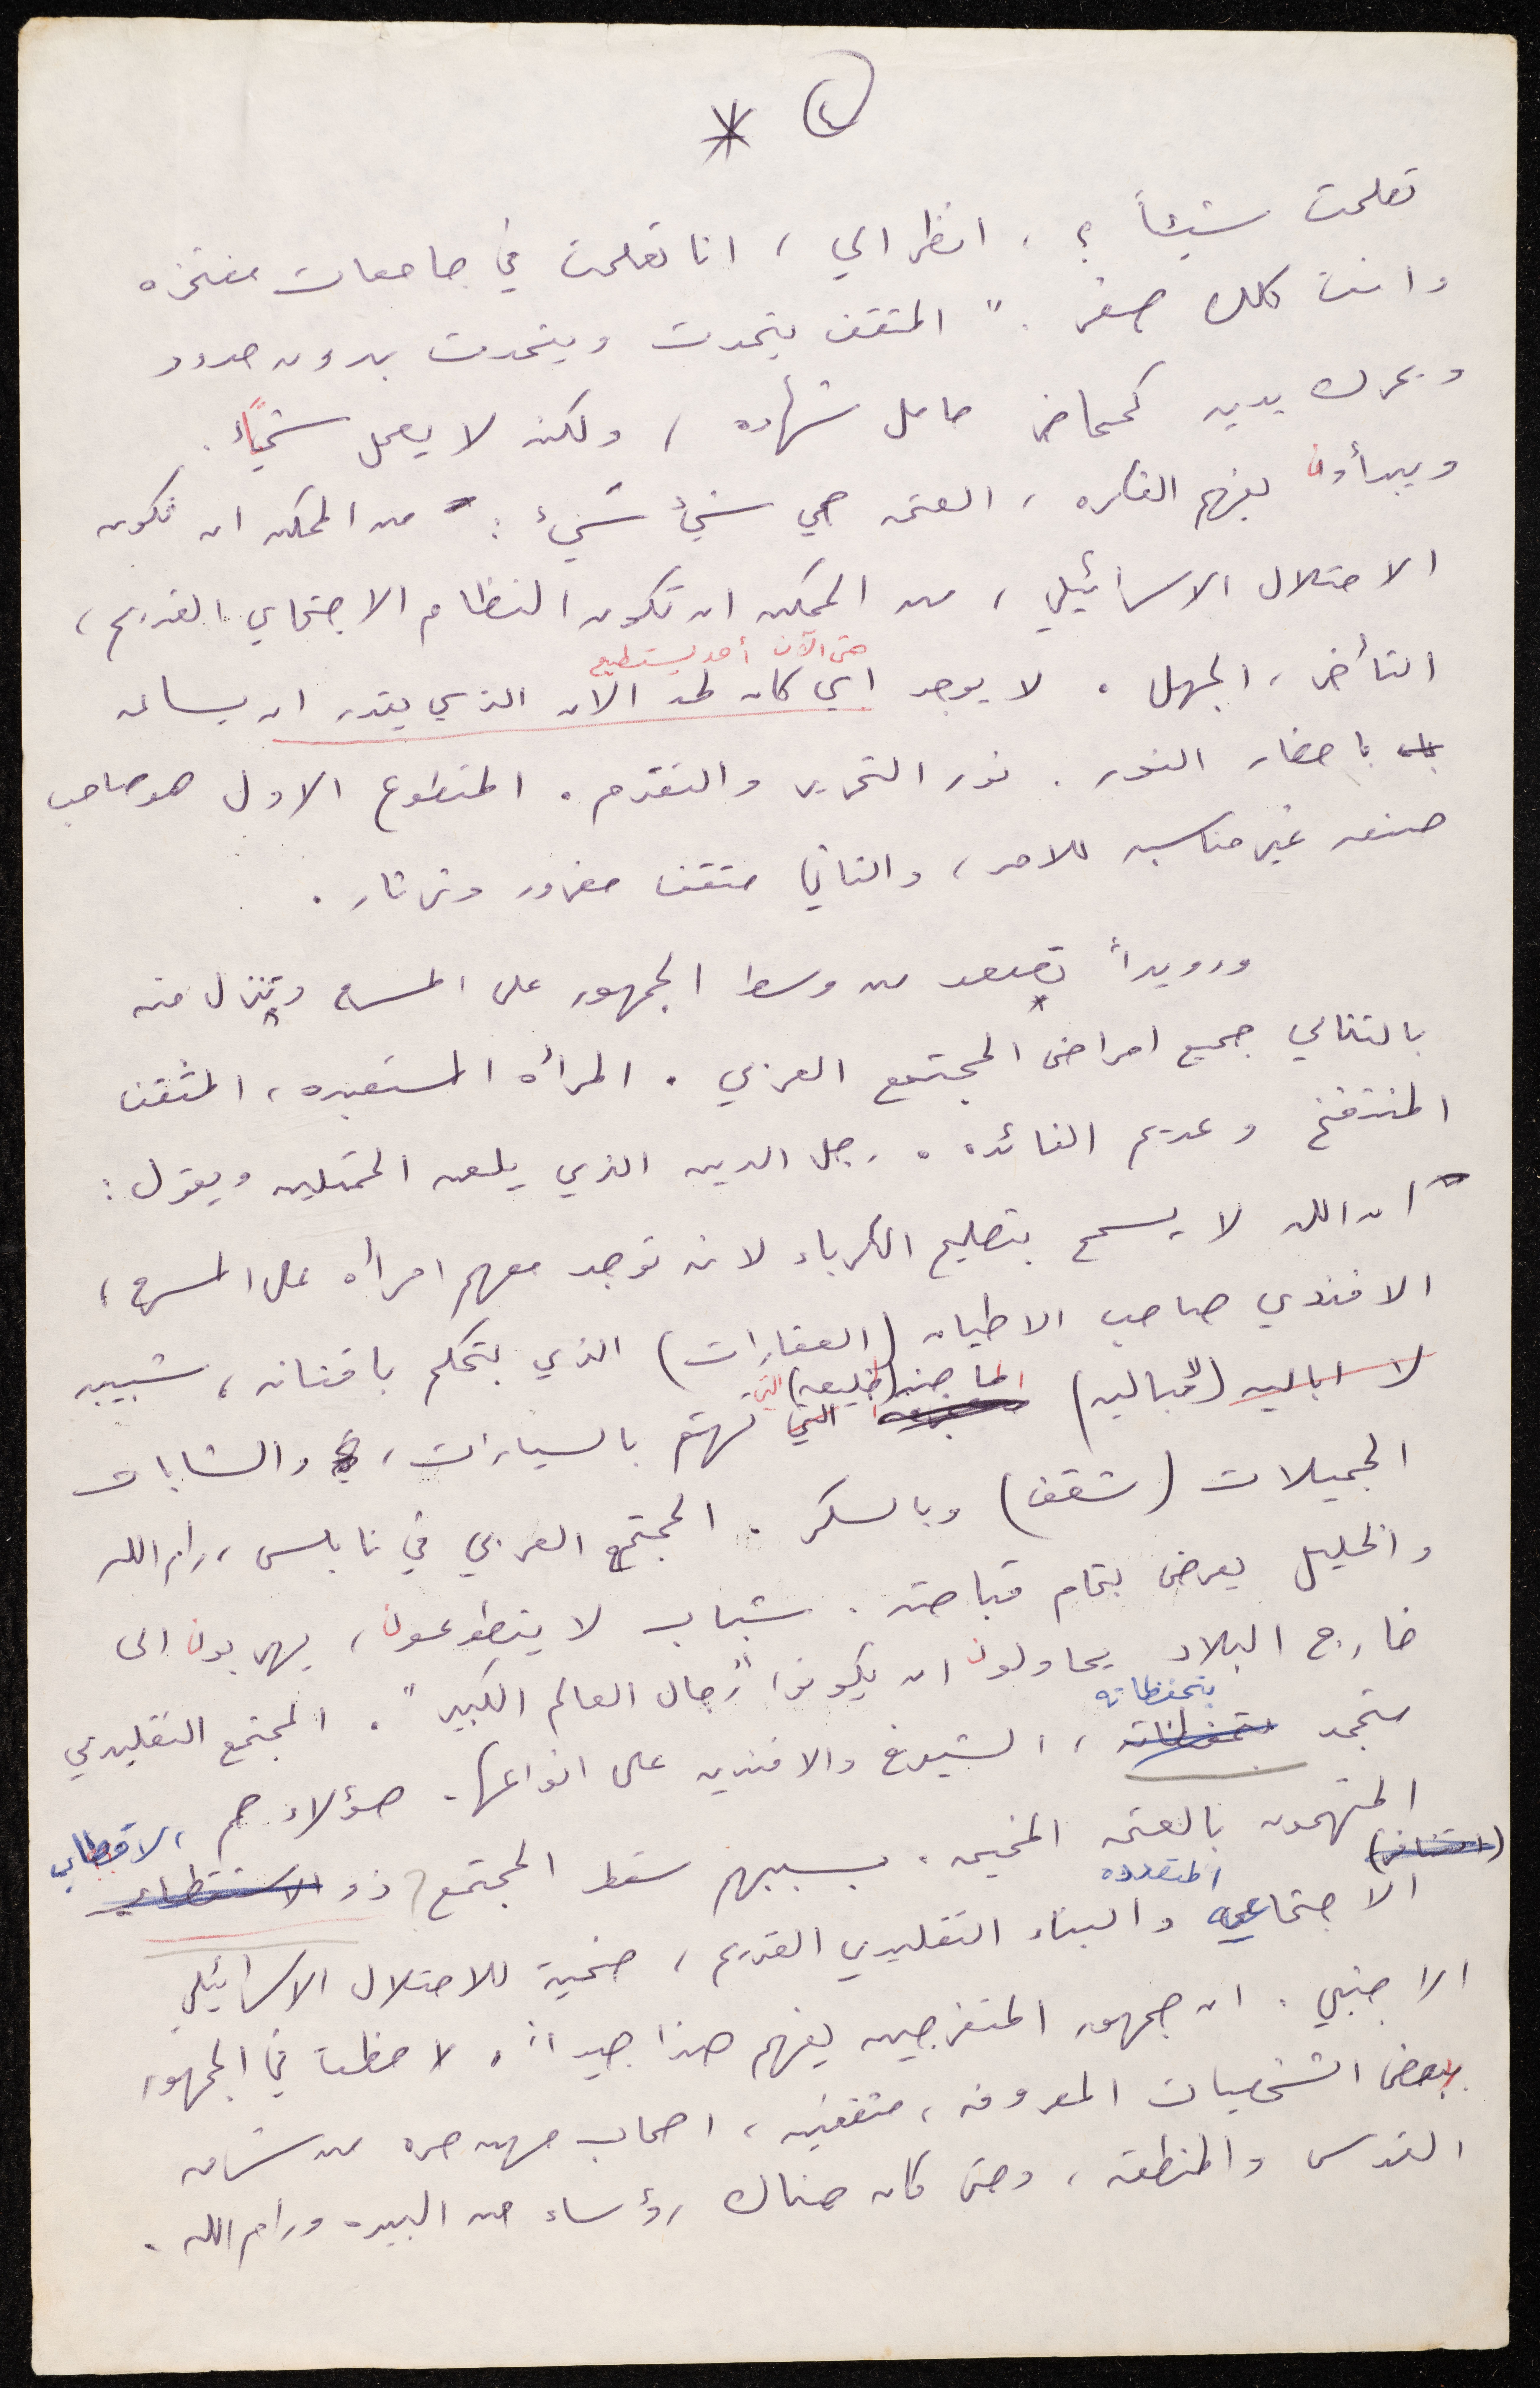 * (٤)
تعلمت شيئاً ؟ ، انظر الي ، انا تعلمت في جامعات مفتخره
وانت كلك صفر . " المثقف يتحدث ويتحدث بدون حدود
ويحرك يديه كمحاضر حامل شهاده ، ولكنه لا يعمل شيئاً .
ويبدأون بفهم الفكره ، العتمه هي شيئ سيئ : من الممكن ان تكون
الاحتلال الاسرائيلي ، من الممكن ان تكون النظام الاجتماعي القديم ،
حتى الآن أحد يستطيع
التأخر ، الجهل . لا يوجد اي كان لحد الان الذي يقدر ان يساعد
باحضار النور . نور التحرير والتقدم . المتطوع الاول هو صاحب
صنعه غير مناسبه للامر ، والثاني مثقف مغرور وثرثار .
ورويداً تصعد من وسط الجمهور على المسرح وتنزل منه
بالتتالي جميع امراض المجتمع العربي . المرأه المستعبده ، المثقف
المنتفخ وعديم الفائده . رجل الدين الذي يلعن الممثلين ويقول :
" ان الله لا يسمح بتصليح الكهرباء لانه توجد معهم امرأه على المسرح ،
الافندي صاحب الاطيان (العقارات) الذي يتحكم باقنانه ، شبيبه
لا اباليه (لامباليه) الماجنه (الخليعه) التي تهتم بالسيارات ، والشابات
الجميلات (شقف) وبالسكر . المجتمع العربي في نابلس ، رام الله
والخليل يعرض بتمام قباحته . شباب لا يتطوعون ، يهربون الى
خارج البلاد يحاولون ان يكونوا "رجال العالم الكبير " . المجتمع التقليدي
بتحفظاته
متجمد ، الشيوخ والافنديه على انواعها . هؤلاء هم
المتهمون بالعتمه المخيمه . بسببهم سقط المجتمع ذو الاقطاب
المتعدده
الاجتماعيه والبناء التقليدي القديم ، ضحية للاحتلال الاسرائيلي
الاجنبي . ان جمهور المتفرجين يفهم هذا جيداً ، لاحظت في الجمهور
بعض الشخصيات المعروفه ، مثقفين ، اصحاب مهن حره من شرق
القدس والمنطقه ، وحتى كان هناك رؤساء من البيره ورام الله .